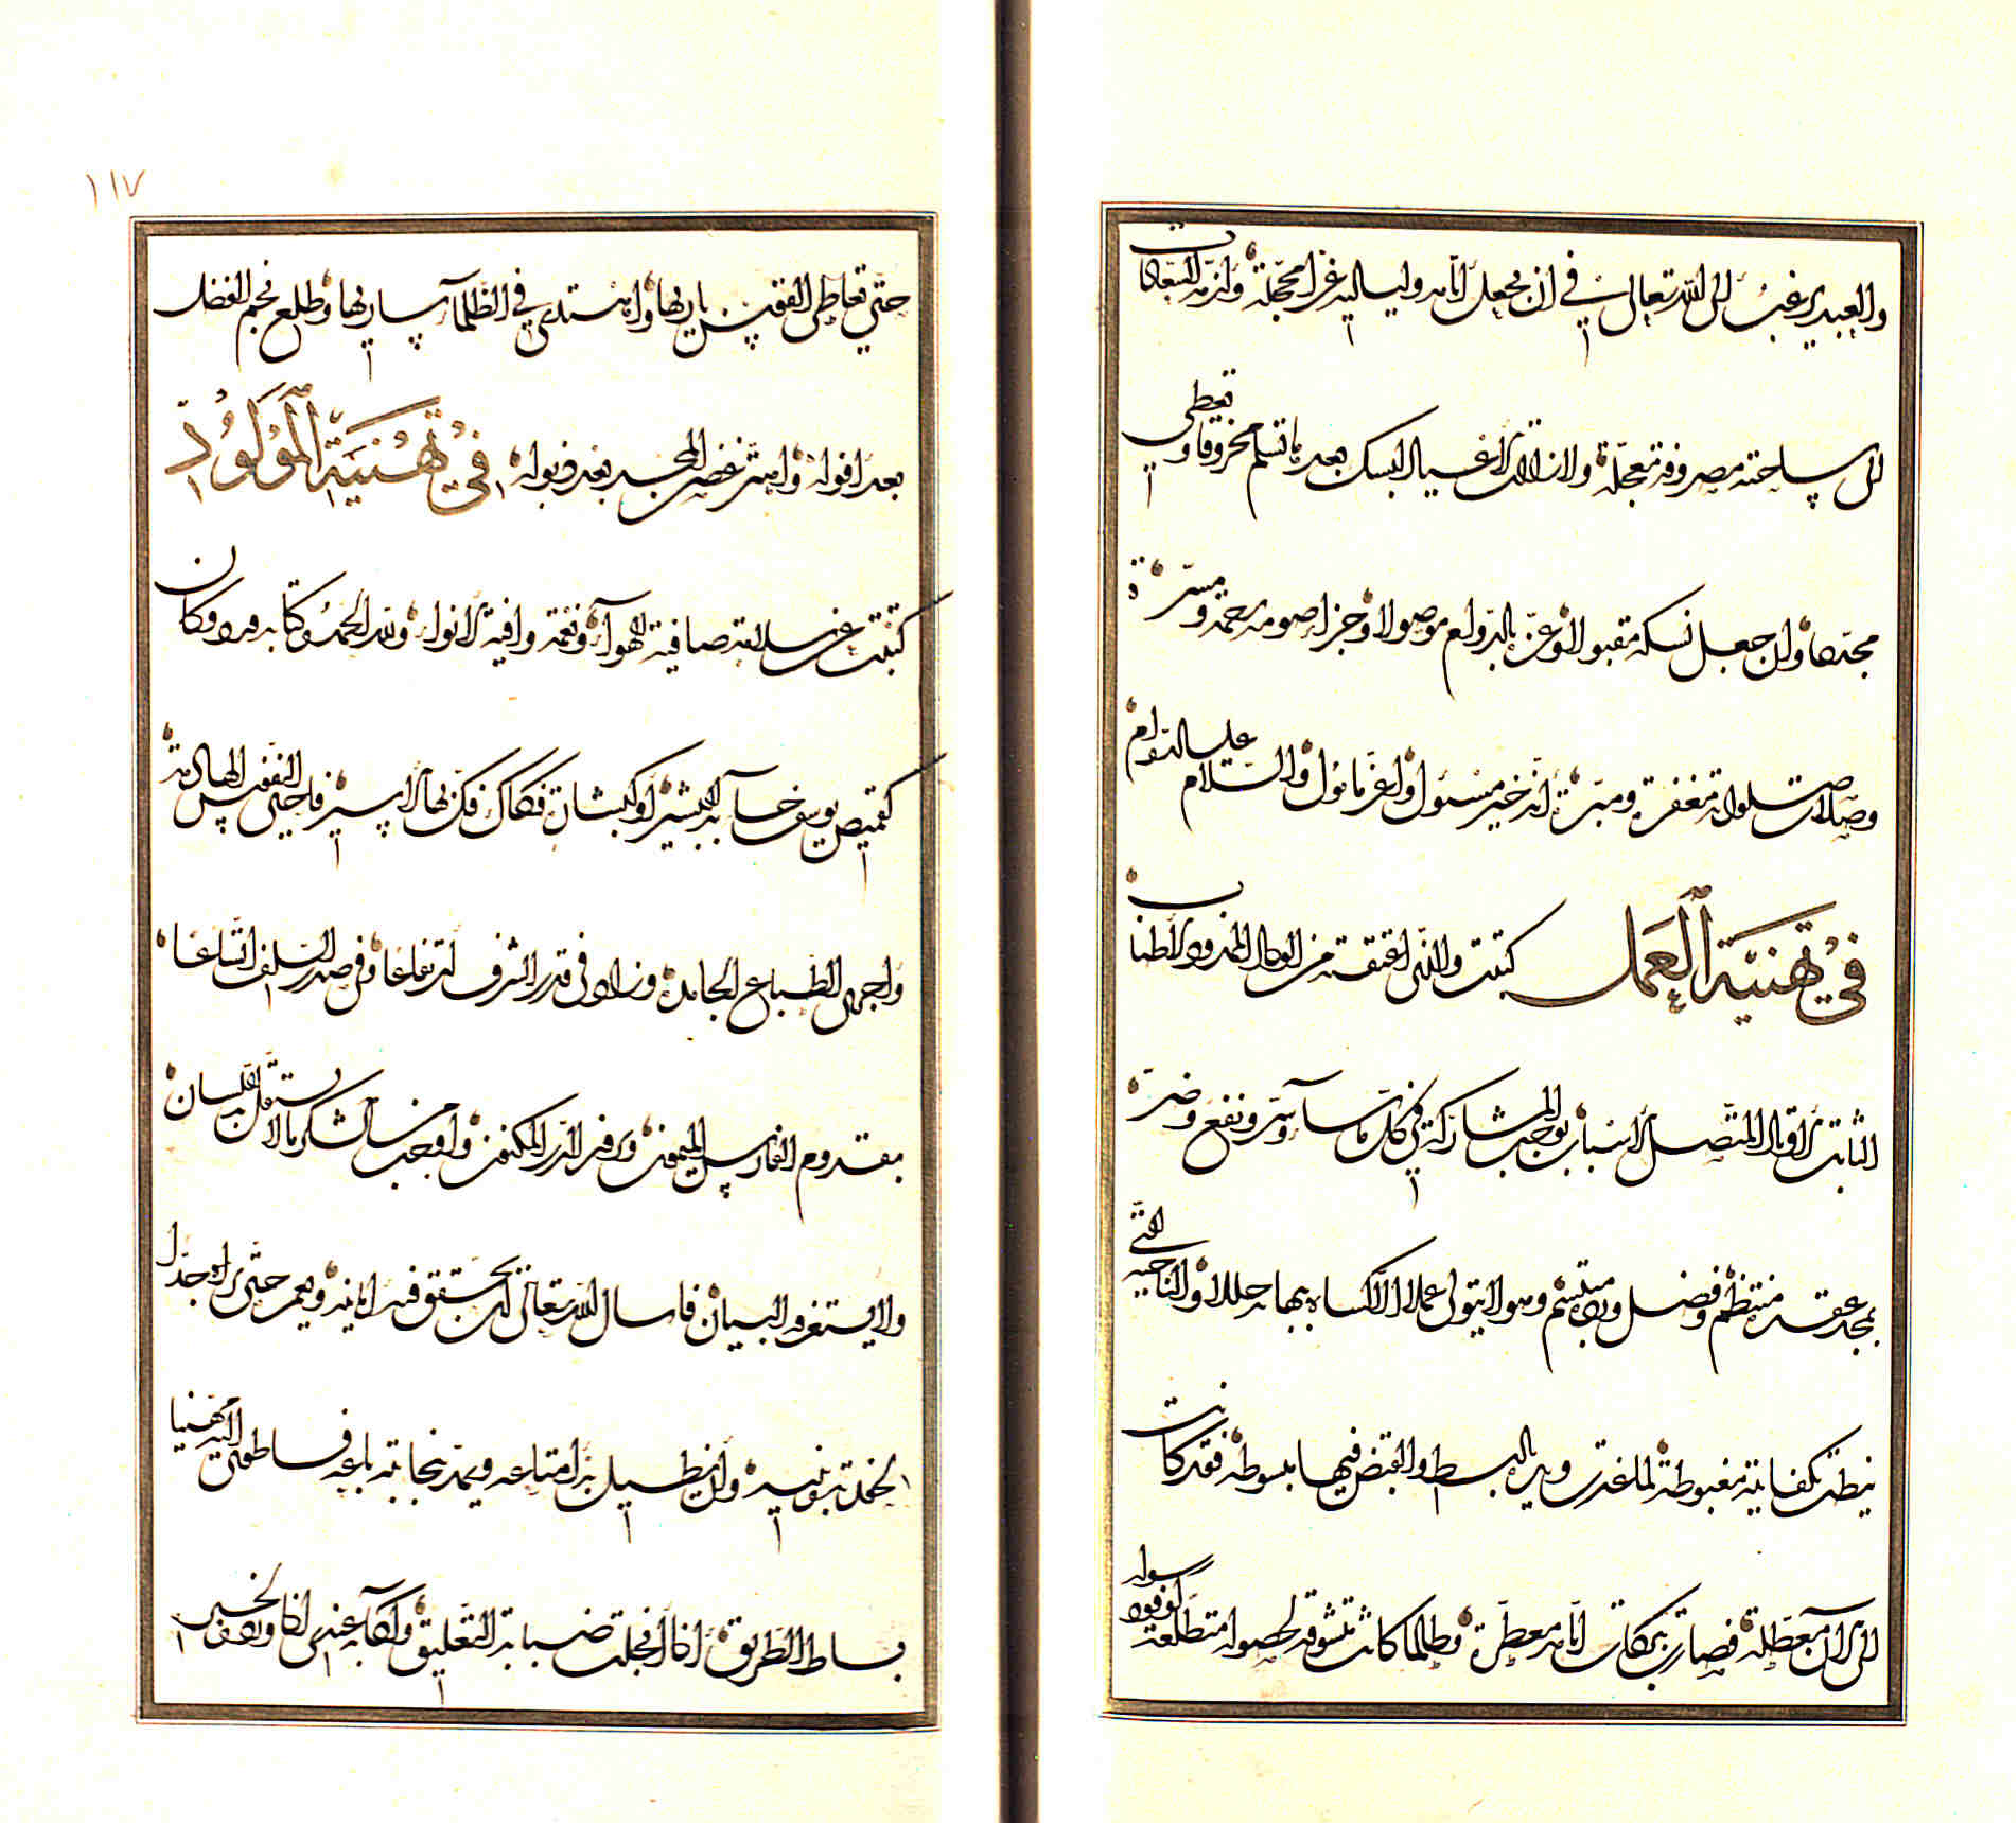 والعبد يرغب الى الله تعالى في ان يجعل ايامه ولياليه غرا محجلة وازمنة السعادات
الى ساحته مصروفة معجلة ولا زالت الاعياد لبسك بعد ما تسلم مخروقا وتعطى
مجتدها وان جعل نسكه مقبولا وعزه بالدوام موصولا وجزا صومه رحمة ومسرة
وصلات صلواته مغفرة ومبرة انه خير مسئول واعز مامول والسلام عليه الدوام
في تهنية العمل كتبت والنبى اعتقته من الوداد الممدود الاطناب
الثابت الاوتاد المتصل الاسباب يوجب المشاركة في كل ما ساء وسر ونفع وضر
بمجد عقد منتظم وفضل وهو لا يتولى عملا الا كساه ببهائه حللا والناحية التى
نيطت بكفايته مغبوطة لما غدت ويده بالبسط والقبض فيها مبسوطة فقد كانت
الى الآن معطلة فصارت بمكان ايامه معطرة وطالما كانت متشوقة لحصوله متطلعة لوفود رسوله
١١٧
حتى تعاطى القوس باريها واهتدى في الظلماء ساريها وطلع نجم الفضل
بعد افوله واهتز غصن المجد بعد ذبوله في تهنية المولود
كتبت عن سلامة صافية الهواء ونعمة وافية الانواء ولله الحمد وكتابه ورد وكان
كقميص يوسف جاء به البشير او كبشارة فكاك فك بها الاسير فاحيى النفوس الهامدة
واجرى الطباع الجامدة وزادنى في قدر الشرف ارتفاعا وفي صدر السلف اتساعا
بقدوم الفارس الميمون ورفد الدر المكنون واوجب من الشكر ما لا يستقل به اللسان
ولا يستغرقه البيان فاسال الله تعالى ان يحقق فيه امانيه ويعمر حتى يراه جدا
لخمدة بنو بنيه وان يطيل به امتاعه ويمد بنجابته باعه فساطوى اليه مهنيا
بساط الطريق اذا انجلت ضبابة التعليق ولقاءه عندى اذا